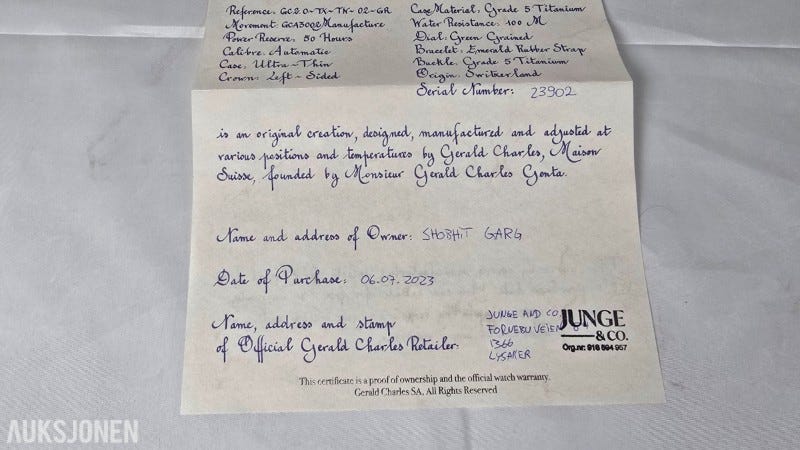 Reference: GC2.0-TX-TN-02-GR
Movement: GCA3002 Manufacture
Power Reserve: 50 Hours
Calibre: Automatic
Case: Ultra-Thin
Crown: Left-Sided
Case Material: Grade 5 Titanium
Water Resistance: 100 M
Dial: Green Grained
Bracelet: Emerald Rubber Strap
Buckle: Grade 5 Titanium
Origin: Switzerland
Serial Number: 23902
is an original creation, designed, manufactured and adjusted at
various positions and temperatures by Gerald Charles, Maison
Suisse, founded by Monsieur Gerald Charles Genta.
Name and address of Owner: SHOBHIT GARG
Date of Purchase: 06.07.2023
Name, address and stamp
of Official Gerald Charles Retailer:
JUNGE AND CO
FORNEBUVEIEN
1366
LYSAKER
JUNGE
& CO.
Org.nr: 918 594 957
This certificate is a proof of ownership and the official watch warranty.
Gerald Charles SA, All Rights Reserved
AUKSJONEN